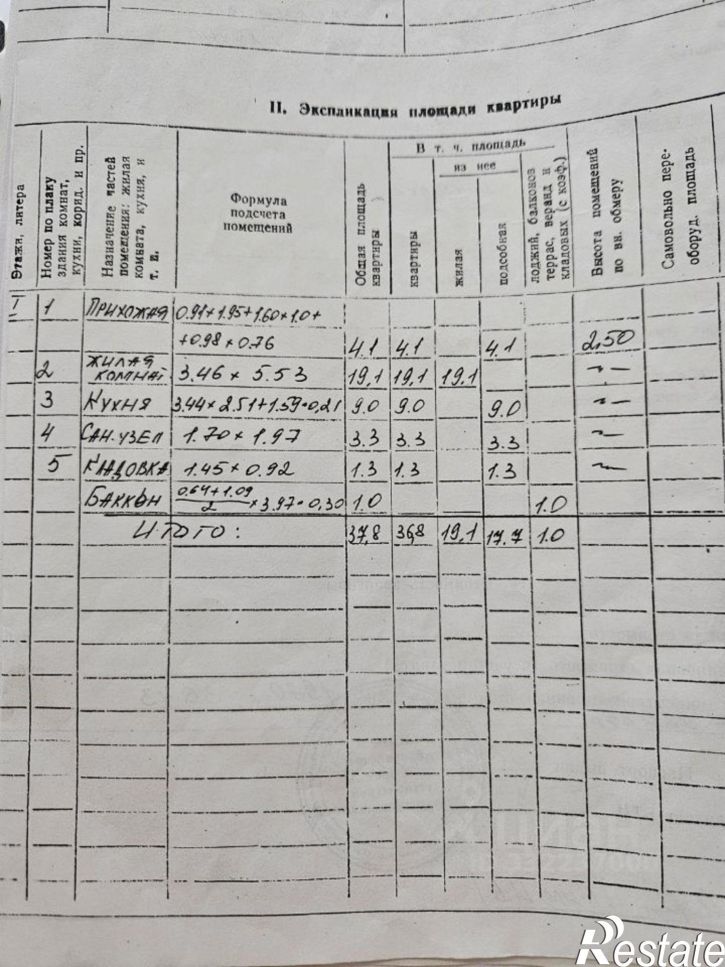 II. Экспликация площади квартиры
Этажи, литера
Номер по плану здания комнат, кухни, корид. и пр.
Назначение частей помещения: жилая комната, кухня, и т. п.
Формула подсчета помещений
Общая площадь квартиры
В т. ч. площадь
квартиры
из нее
жилая
подсобная
лоджий, балконов террас, веранд и кладовых (с коэф.)
Высота помещений по вн. обмеру
Самовольно переоборуд. площадь
I 1 ПРИХОЖАЯ 0.91+1.95+1.60×1.0+
+0.98×0.76 4.1 4.1 4.1 2,50
2 ЖИЛАЯ КОМНАТ 3.46 × 5.53 19,1 19,1 19,1 —"—
3 КУХНЯ 3.44×2.51+1.59×0,21 9.0 9.0 9.0 —"—
4 САН.УЗЕЛ 1.70 × 1.97 3.3 3.3 3.3 —"—
5 КЛАДОВКА 1.45×0.92 1.3 1.3 1.3 —"—
БАЛКОН 0,64+1.09/2 ×3.97×0,30 1.0 1.0
ИТОГО: 37,8 36,8 19,1 17.7 1.0
Restate